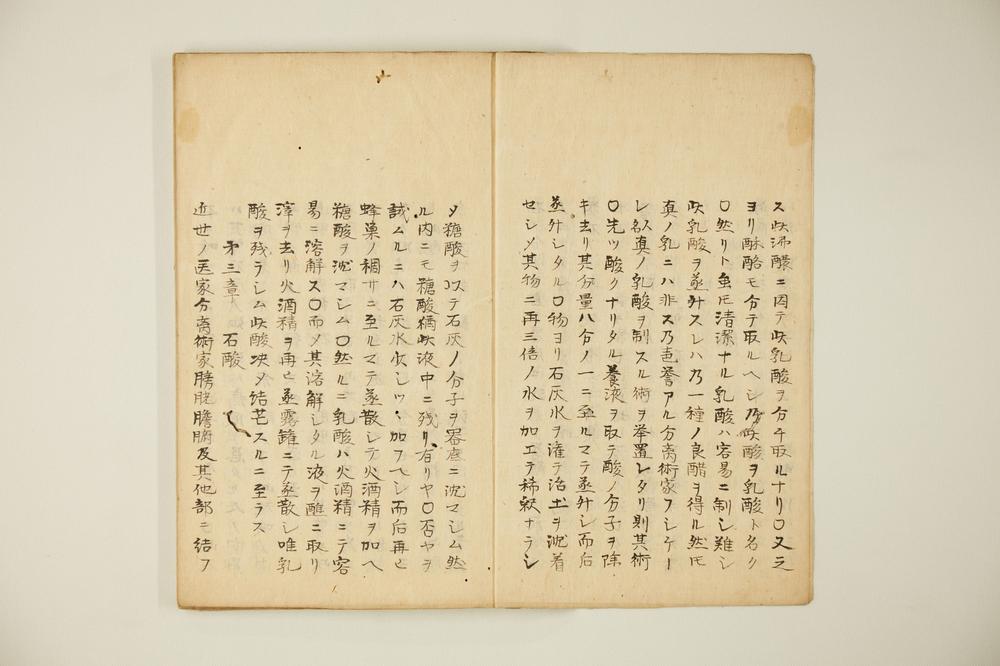 ス此沸醸ニ因テ此乳酸ヲ分チ取ルナリ〇又之
ヨリ酥酪モ分テ取ルヘシ乃此酸ヲ乳酸ト名ク
〇然リト虽𪜈清潔ナル乳酸ハ容易ニ制シ難シ
此乳酸ヲ蒸升スレハ乃一種ノ良醋ヲ得ル然𪜈
真ノ乳ニハ非ス乃芭誉アル分离術家フシケー
レ以真ノ乳酸ヲ制スル術ヲ挙置レタリ則其術
〇先ツ酸クナリタル養液ヲ取テ酸ノ分子ヲ除
キ去リ其分量八分ノ一ニ至ルマテ蒸升シ而后
蒸升シタル〇物ヨリ石灰水ヲ潅テ治土ヲ沈着
セシメ其物ニ再三倍ノ水ヲ加エテ稀釈ナラシ
メ糖酸ヲ以テ石灰ノ分子ヲ器底ニ沈マシム然
ル内ニモ糖酸猶此液中ニ残リ有リヤ〇否ヤヲ
試ムルニハ石灰水少シツヽ加フヘシ而后再ヒ
蜂菓ノ稠サニ至ルマテ蒸散シテ火酒精ヲ加ヘ
糖酸ヲ沈マシム〇然ルニ乳酸ハ火酒精ニテ容
易ニ溶解ス〇而メ其溶解シタル液ヲ醮ニ取リ
滓ヲ去リ火酒精ヲ再ヒ蒸露鑵ニテ蒸散シ唯乳
酸ヲ残ラシム此酸决メ結芒スルニ至ラス
才三章 石酸
近世ノ医家分离術家膀胱膽腑及其他部ニ結フ